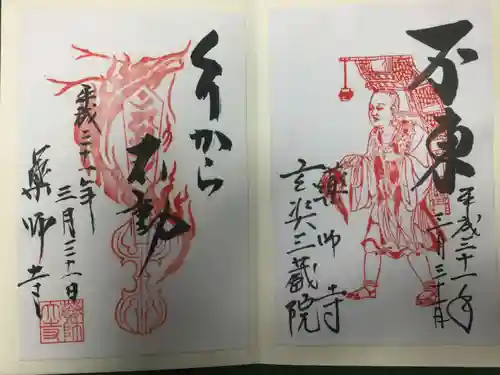 不東
平成三十一年
三月三十一日
薬師寺
玄奘三蔵院
くりから
不動
平成三十一年
三月三十一日
薬師寺